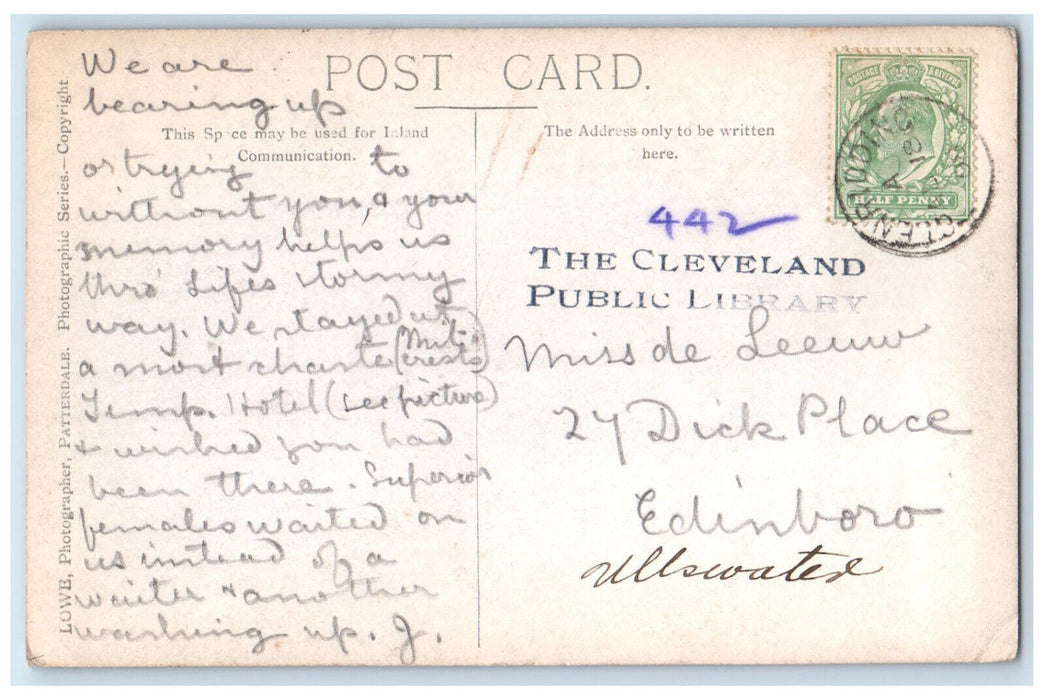 We are
bearing up
POST CARD.
This Space may be used for Inland
Communication.
The Address only to be written
here.
or trying to
without you, & your
memory helps us
thro' Life's stormy
way. We stayed at
a most
Temp. Hotel (see picture)
& wished you had
been there. Superior
females waited on
us instead of a
waiter & another
washing up. J.
LOWE, Photographer, PATTERDALE. Photographic Series.—Copyright.
POSTAGE & REVENUE
HALF PENNY
GLENRIDDING
442
THE CLEVELAND
PUBLIC LIBRARY
Miss de Leeuw
27 Dick Place
Edinboro
Ullswater